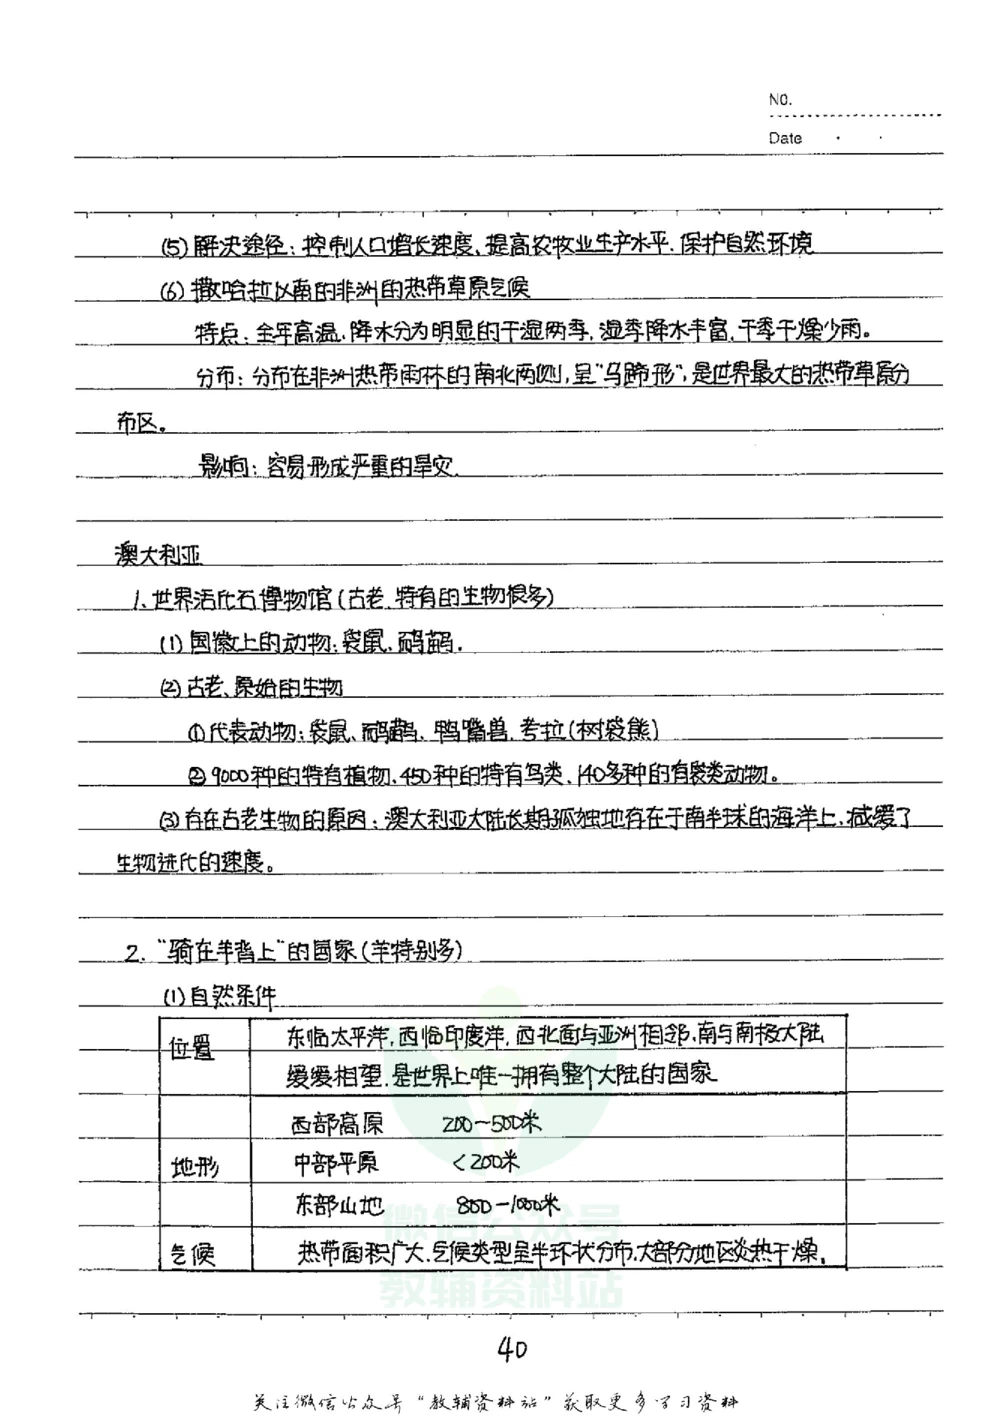 No.
Date
(5) 解决途径：控制人口增长速度、提高农牧业生产水平、保护自然环境
(6) 撒哈拉以南的非洲的热带草原气候
特点：全年高温，降水分为明显的干湿两季，湿季降水丰富，干季干燥少雨。
分布：分布在非洲热带雨林的南北两侧，呈"马蹄形"，是世界最大的热带草原分
布区。
影响：容易形成严重的旱灾.
澳大利亚
1、世界活化石博物馆(古老、特有的生物很多)
(1) 国徽上的动物：袋鼠、鸸鹋.
(2) 古老、原始的生物
①代表动物：袋鼠、鸸鹋、鸭嘴兽、考拉(树袋熊)
②9000种的特有植物、450种的特有鸟类、140多种的有袋类动物。
(3) 存在古老生物的原因：澳大利亚大陆长期孤独地存在于南半球的海洋上，减缓了
生物进化的速度。
2. "骑在羊背上"的国家(羊特别多)
(1) 自然条件
位置 东临太平洋，西临印度洋，西北面与亚洲相邻，南与南极大陆
缓缓相望，是世界上唯一拥有整个大陆的国家
西部高原 200~500米
地形 中部平原 <200米
东部山地 800-1000米
气候 热带面积广大，气候类型呈半环状分布，大部分地区炎热干燥。
微信公众号
教辅资料站
40
关注微信公众号"教辅资料站"获取更多学习资料